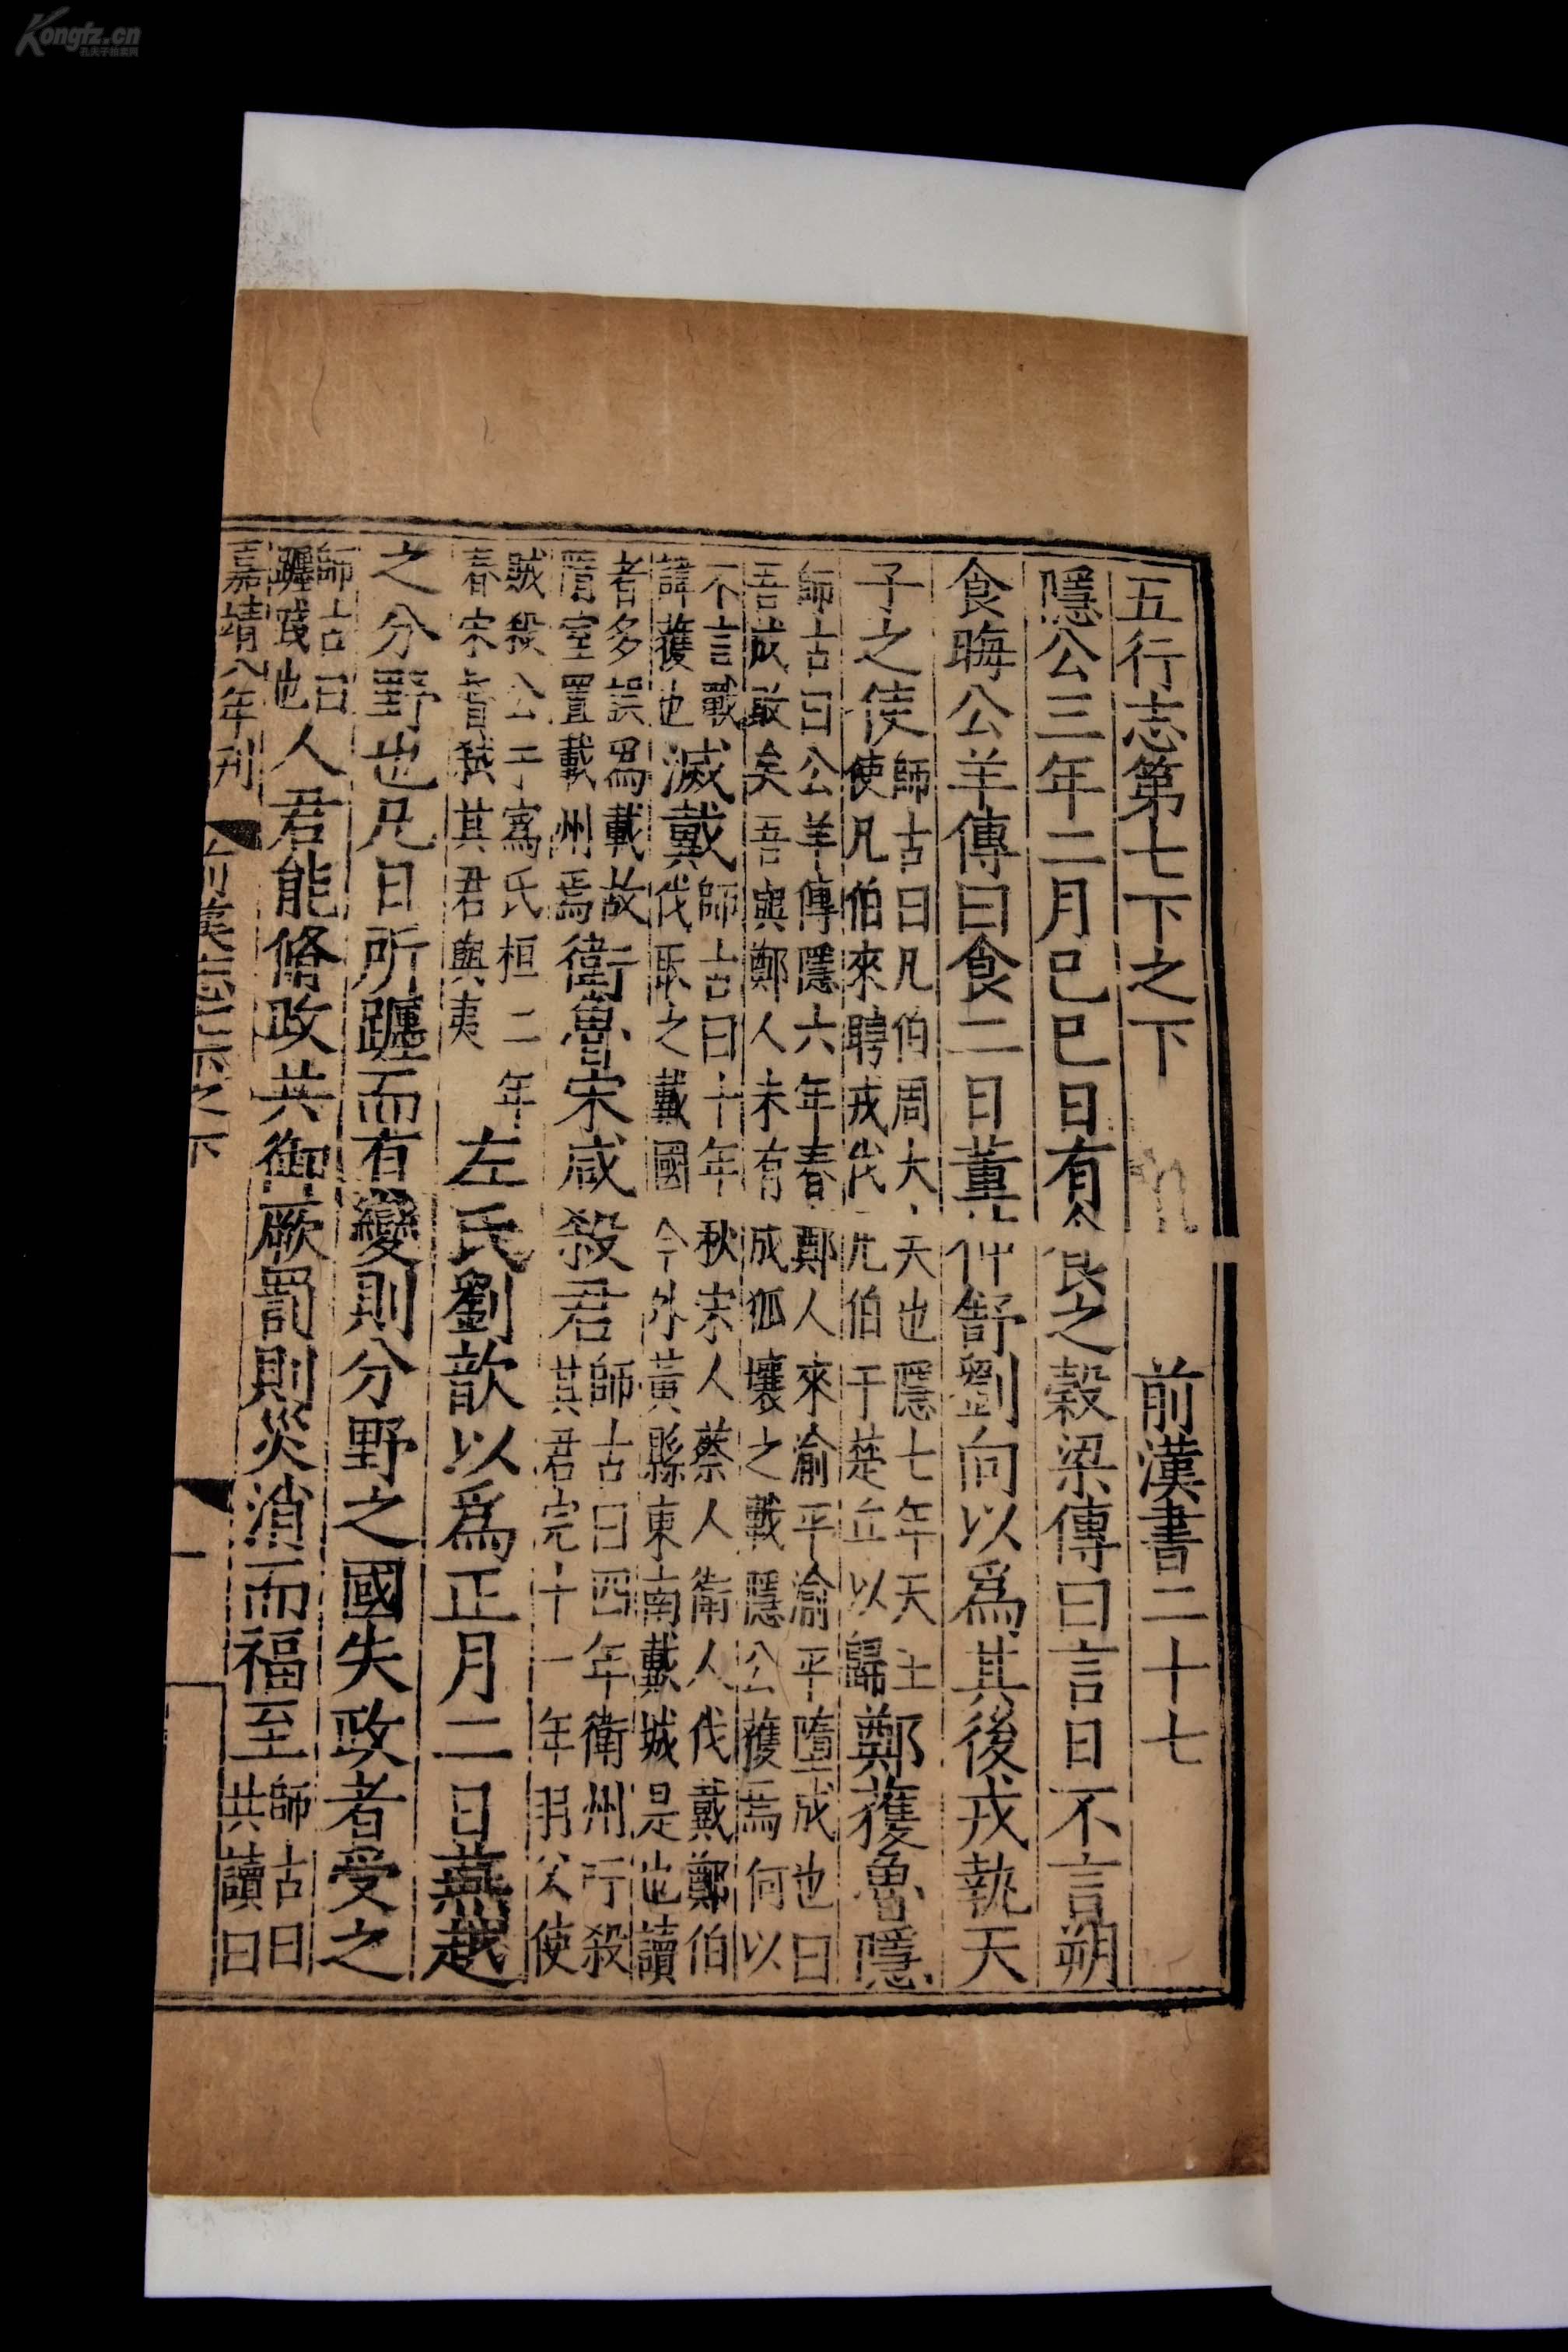 Kongfz.cn
孔夫子拍卖网
五行志第七下之下 前漢書二十七
隱公三年二月己巳日有食之穀梁傳曰言日不言朔
食晦公羊傳曰食二日董仲舒劉向以爲其後戎執天
子之使
師古曰凡伯周大夫天也隱七年天王
使凡伯來聘戎伐凡伯于楚丘以歸
鄭獲魯隱
師古曰公羊傳隱六年春鄭人來渝平渝平墮成也曰
吾成敗矣吾與鄭人未有成狐壤之戰隱公獲焉何以
不言戰
諱獲也
滅戴
師古曰十年秋宋人蔡人衛人伐戴鄭伯
伐取之戴國今外黃縣東南戴城是也讀
者多誤爲載故
隋室置載州焉
衛魯宋咸殺君
師古曰四年衛州吁殺
其君完十一年羽父使
賊殺公于寪氏桓二年
春宋督殺其君與夷
左氏劉歆以爲正月二日燕越
之分野也凡日所躔而有變則分野之國失政者受之
師古曰
躔踐也
人君能脩政共御厥罰則災消而福至
師古曰
共讀曰
嘉靖八年刊
前漢志七下之下
一